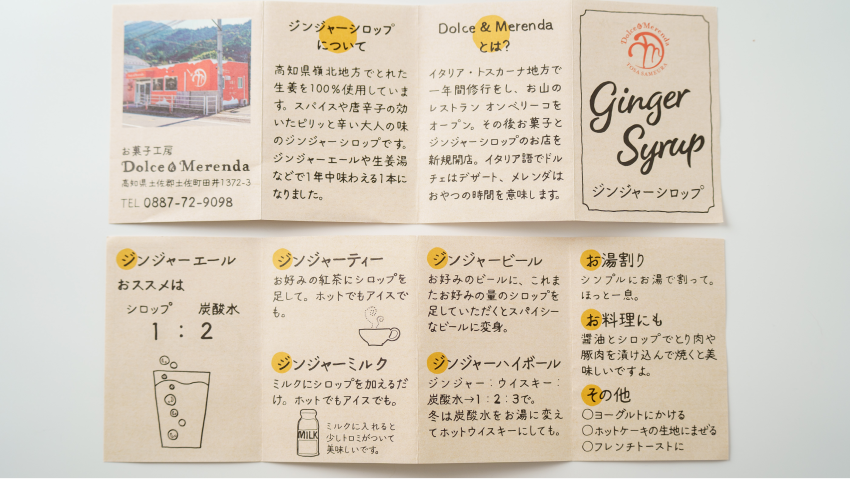 お菓子工房
Dolce & Merenda
高知県土佐郡土佐町田井1372-3
TEL 0887-72-9098
ジンジャーシロップ
について
高知県嶺北地方でとれた
生姜を100%使用していま
す。スパイスや唐辛子の効
いたピリッと辛い大人の味
のジンジャーシロップです。
ジンジャーエールや生姜湯
などで1年中味わえる1本に
なりました。
Dolce & Merenda
とは?
イタリア・トスカーナ地方で
一年間修行をし、お山の
レストラン オンベリーコを
オープン。その後お菓子と
ジンジャーシロップのお店を
新規開店。イタリア語でドル
チェはデザート、メレンダは
おやつの時間を意味します。
Dolce & Merenda
TOSA SAMEURA
Ginger
Syrup
ジンジャーシロップ
ジンジャーエール
おススメは
シロップ 炭酸水
1 : 2
ジンジャーティー
お好みの紅茶にシロップを
足して。ホットでもアイスで
も。
ジンジャーミルク
ミルクにシロップを加えるだ
け。ホットでもアイスでも。
MILK
ミルクに入れると
少しトロミがついて
美味しいです。
ジンジャービール
お好みのビールに、これま
たお好みの量のシロップを
足していただくとスパイシー
なビールに変身。
ジンジャーハイボール
ジンジャー:ウイスキー:
炭酸水→1:2:3で。
冬は炭酸水をお湯に変え
てホットウイスキーにしても。
お湯割り
シンプルにお湯で割って。
ほっと一息。
お料理にも
醤油とシロップでとり肉や
豚肉を漬け込んで焼くと美
味しいですよ。
その他
○ヨーグルトにかける
○ホットケーキの生地にまぜる
○フレンチトーストに